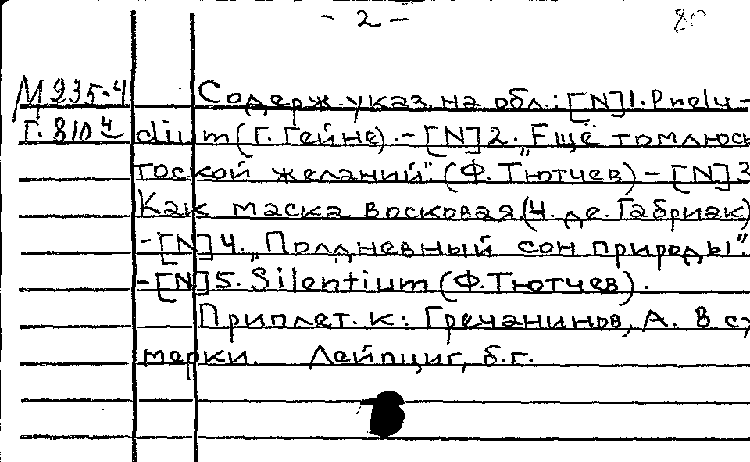 - 2 -
М 235.4 Содерж. указ. на обл.: [N] 1. Prelu-
Г. 810 dium (Г. Гейне). - [N] 2. „Ещё томлюсь
тоской желаний". (Ф. Тютчев) - [N] 3
Как маска восковая (Ч. де Габриак)
- [N] 4. „Полдневный сон природы".
- [N] 5. Silentium (Ф. Тютчев).
Приплет. к: Гречанинов, А. В
мерки. Лейпциг, б.г.